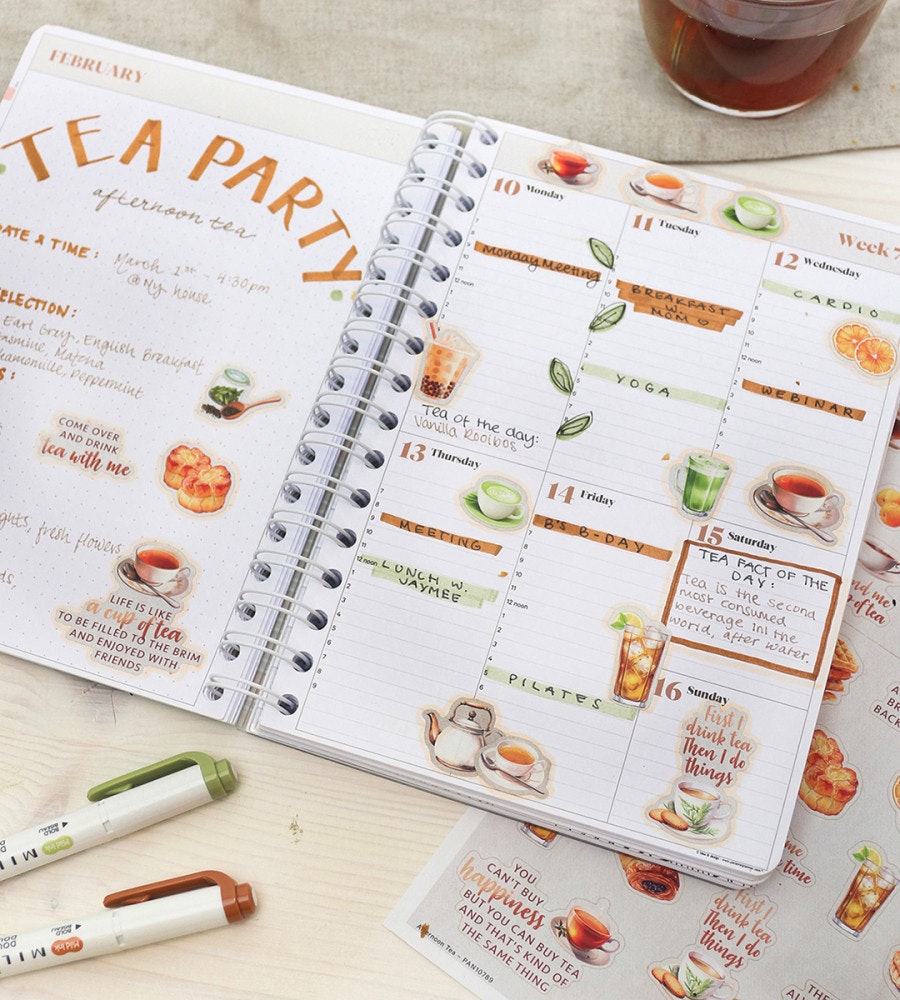 FEBRUARY
TEA PARTY
afternoon tea
DATE & TIME:
March 1st - 4:30pm
@NY house
SELECTION:
Earl Grey, English Breakfast
Jasmine, Matcha
Chamomile, Peppermint
S:
COME OVER
AND DRINK
tea with me
fresh flowers
LIFE IS LIKE
a cup of tea
TO BE FILLED TO THE BRIM
AND ENJOYED WITH
FRIENDS
Week 7
10 Monday
Monday Meeting
Tea of the day:
Vanilla Rooibos
11 Tuesday
BREAKFAST
W.
MOM
YOGA
12 Wednesday
CARDIO
WEBINAR
13 Thursday
MEETING
12 noon
LUNCH W.
JAYMEE
14 Friday
B'S B-DAY
12 noon
PILATES
15 Saturday
TEA FACT OF THE
DAY:
Tea is the second
most consumed
beverage in the
world, after water.
16 Sunday
First I
drink tea
Then I do
things
MILD
Mild Ink
BOLD
MILD
Mild Ink
YOU
CAN'T BUY
happiness
BUT YOU CAN BUY TEA
AND THAT'S KIND OF
THE SAME THING
Afternoon Tea - PAN10789
First I
drink tea
Then I do
things
time